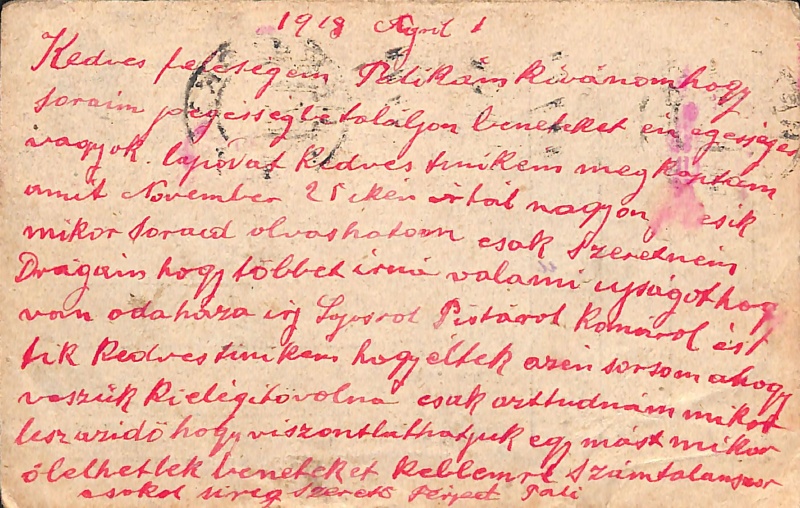 1918 April 1
Kedves feleségem Petikám kivánom hogy
soraim jó egésségbe találjon beneteket én egésséges
vagyok. lapóvat kedves tinikem meg kaptam
amit November 25 ikén irtál nagyon esik
mikor soraid olvashatom csak szeretném
Drágám hogy többet irná valami ujságot hogy
van odaháza irj Lajosrol Pistárol Romárol és
tik kedves tinikem hogy éltek azén sorsom ahogy
veszük kielégitö volna csak azt tudnám mikor
lesz az idö hogy viszontláthatjuk egy mást mikor
ölelhetlek beneteket keblemre számtalanszor
csokol sirig szeretö férjed Pali